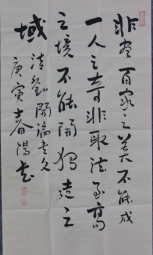 非尽百家之美不能成
一人之奇非取法至高
之境不能開獨造之
域
清劉開論
庚寅春